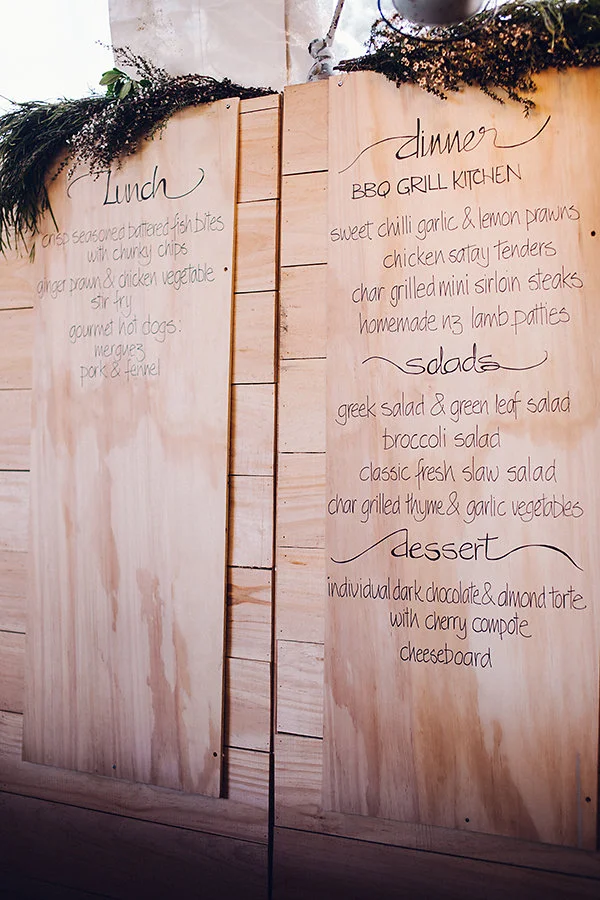 Lunch
crisp seasoned battered fish bites
with chunky chips
ginger prawn & chicken vegetable
stir fry
gourmet hot dogs:
merguez
pork & fennel
dinner
BBQ GRILL KITCHEN
sweet chilli garlic & lemon prawns
chicken satay tenders
char grilled mini sirloin steaks
homemade nz lamb patties
salads
greek salad & green leaf salad
broccoli salad
classic fresh slaw salad
char grilled thyme & garlic vegetables
dessert
individual dark chocolate & almond torte
with cherry compote
cheeseboard